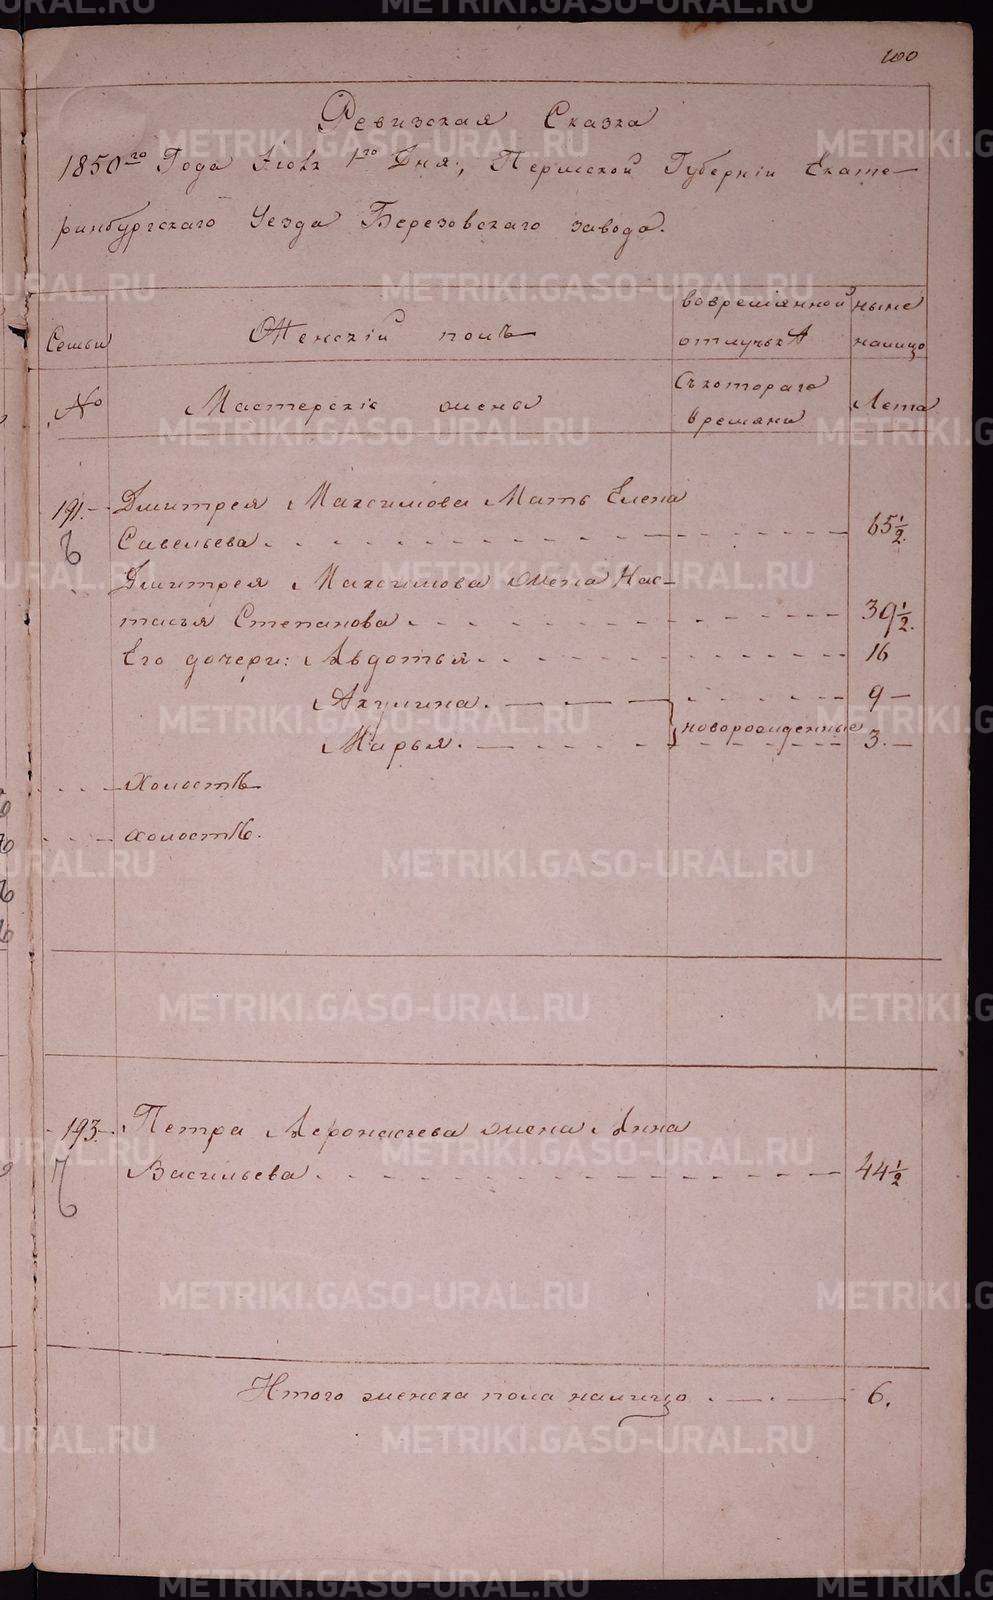 100
Ревизская Сказка
1850го Года Июля 1го Дня, Пермской Губернiи Екате-
ринбургскаго Уезда Березовскаго завода.
Семьи
Женскiй полъ
вовремянной
отлучьке
ныне
налицо
№
Мастерскiе жены
Съкотораго
времяни
Лета
191.
Дмитрея Максимова Мать Елена
Савельева. 65 1/2.
Дмитрея Максимова жена Нас-
тасья Степанова 39 1/2.
Его дочери: Авдотья 16
Акулина. 9
Марья. новорожденные 3.
холостъ
холостъ.
193
Петра Афонасьева жена Анна
Васильева 44 1/2
Итого женска пола налицо 6.
METRIKI.GASO-URAL.RU